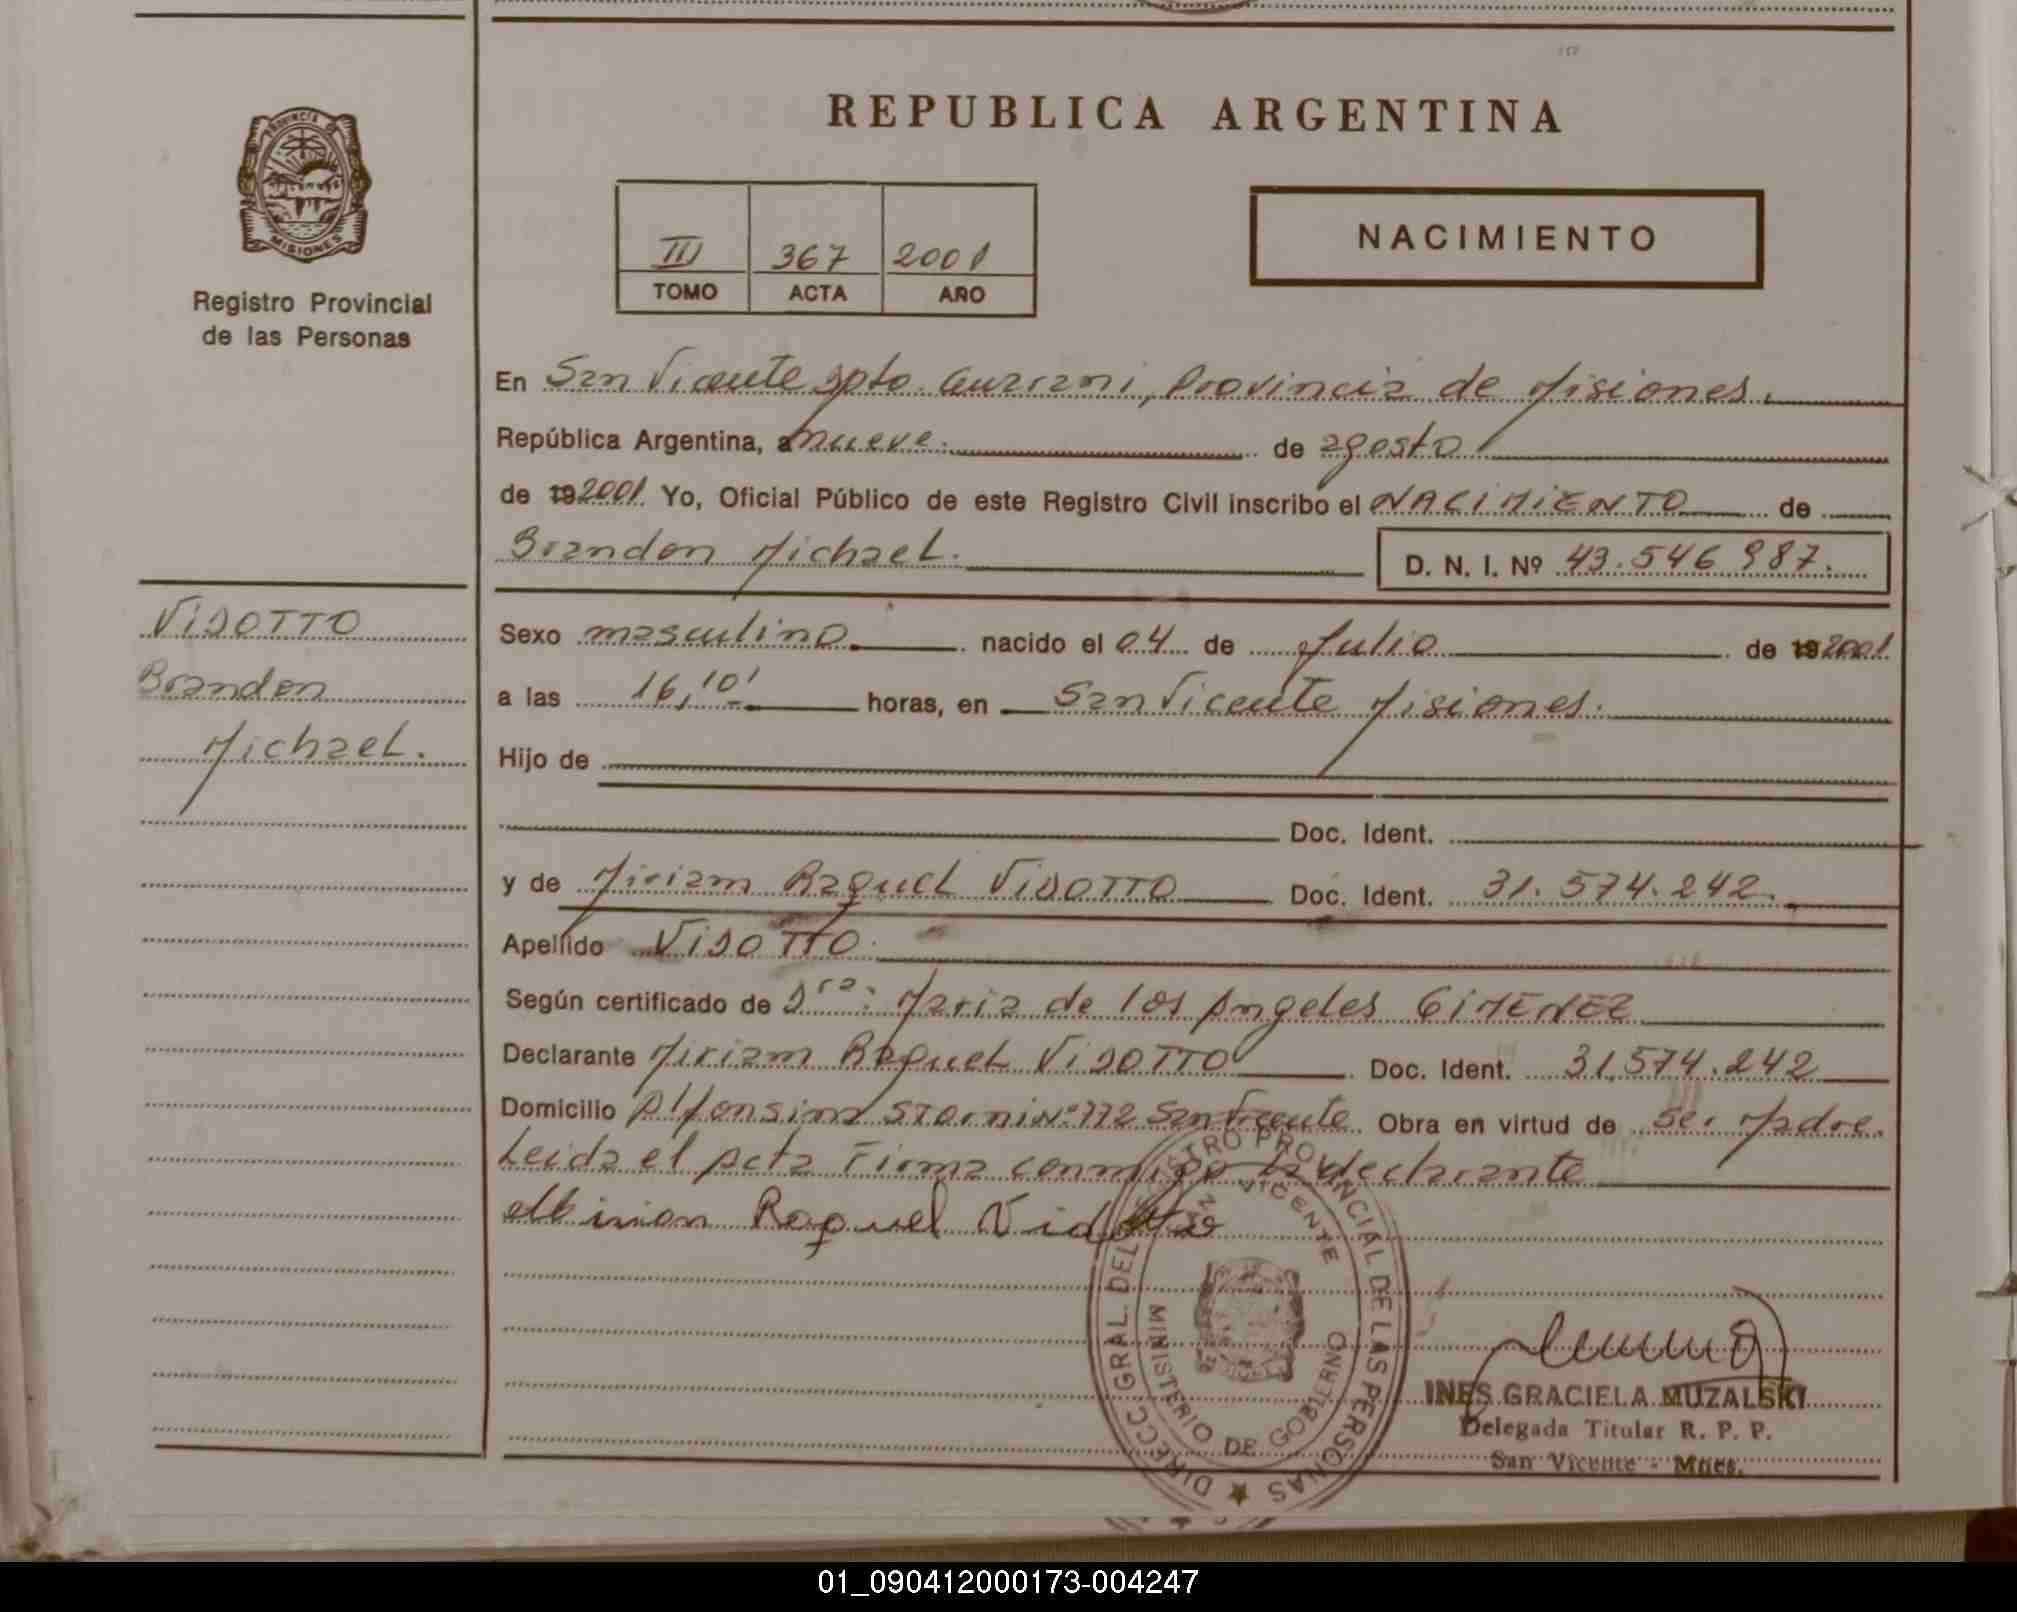 REPUBLICA ARGENTINA
PROVINCIA DE
MISIONES
Registro Provincial
de las Personas
III 367 2001
TOMO ACTA AÑO
NACIMIENTO
En San Vicente Dpto. Guarani, Provincia de Misiones.
República Argentina, a nueve. de agosto
de 19 2001 Yo, Oficial Público de este Registro Civil inscribo el NACIMIENTO de
Brandon Michael. D. N. I. Nº 43.546 987.
VIDOTTO
Brandon
Michael.
Sexo masculino nacido el 04 de Julio de 19 2001
a las 16,10' horas, en San Vicente Misiones.
Hijo de
Doc. Ident.
y de Miriam Raquel VIDOTTO Doc. Ident. 31.574.242.
Apellido VIDOTTO.
Según certificado de Dra: Maria de los Angeles GIMENEZ
Declarante Miriam Raquel VIDOTTO Doc. Ident. 31.574.242
Domicilio Alfonsina Storni Nº 772 San Vicente. Obra en virtud de ser Madre.
Leida el Acta Firma conmigo la declarante
Raquel Vidotto
DIRECC GRAL. DEL REGISTRO PROVINCIAL DE LAS PERSONAS
SAN VICENTE
MINISTERIO DE GOBIERNO
INES GRACIELA MUZALSKI
Delegada Titular R. P. P.
San Vicente - Mnes.
01_090412000173-004247